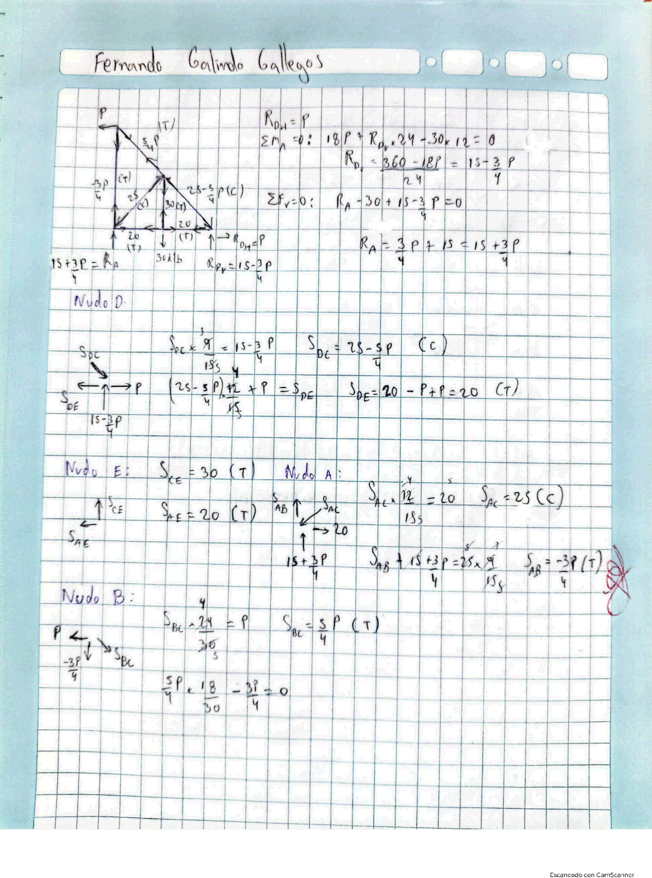 Fernando Galindo Gallegos
P
5/4 P (T)
-3P/4 (T)
25 (C)
30 (T)
25-5/4 P (C)
20 (T)
20 (T)
R_DH = P
15+3P/4 = R_A
30 klb
R_DV = 15-3P/4
R_DH = P
ΣM_A = 0: 18P + R_DV × 24 - 30 × 12 = 0
R_DV = 360-18P/24 = 15-3/4 P
ΣF_V = 0: R_A - 30 + 15-3/4 P = 0
R_A = 3/4 P + 15 = 15 + 3P/4
Nudo D.
S_DC × 9/15 = 15-3/4 P S_DC = 25-5P/4 (C)
S_DC
S_DE
P
15-3P/4
(25-5/4 P) 12/15 + P = S_DE S_DE = 20 - P + P = 20 (T)
Nudo E: S_CE = 30 (T)
S_CE
S_AE
S_AE = 20 (T)
Nudo A:
S_AB
S_AC
20
15+3P/4
S_AC × 12/15 = 20 S_AC = 25 (C)
S_AB + 15+3P/4 = 25 × 9/15 S_AB = -3P/4 (T)
Nudo B:
P
-3P/4
S_BC
S_BC × 24/30 = P S_BC = 5/4 P (T)
5/4 P × 18/30 - 3P/4 = 0
Escaneado con CamScanner